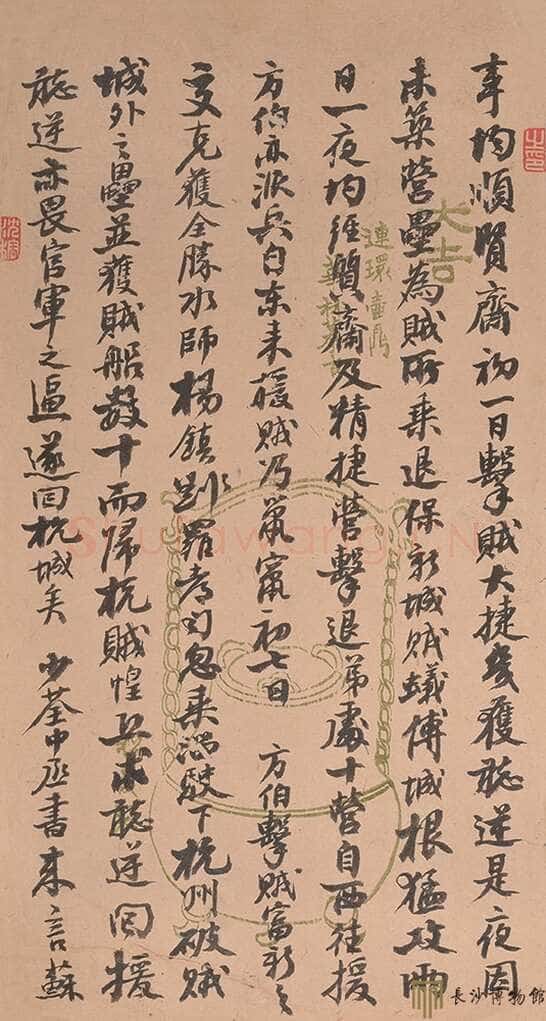 事均順質齋初一日擊賊大捷幾獲聽逆是夜因
未築營壘為賊所乘退保新城賊蟻傅城根猛攻兩
日一夜均經質齋及精捷營擊退弟處十營自西往援
方伯亦派兵自東來援賊乃竄初七日 方伯擊賊富新之
交克獲全勝水師楊鎮羅忽乘潮駛下杭州破賊
城外之壘並獲賊船數十而歸杭賊惶求聽逆回援
聽逆亦畏官軍之逼遂回杭城矣 少荃中丞書來言蘇
大吉
連環壺
之印
長沙博物館